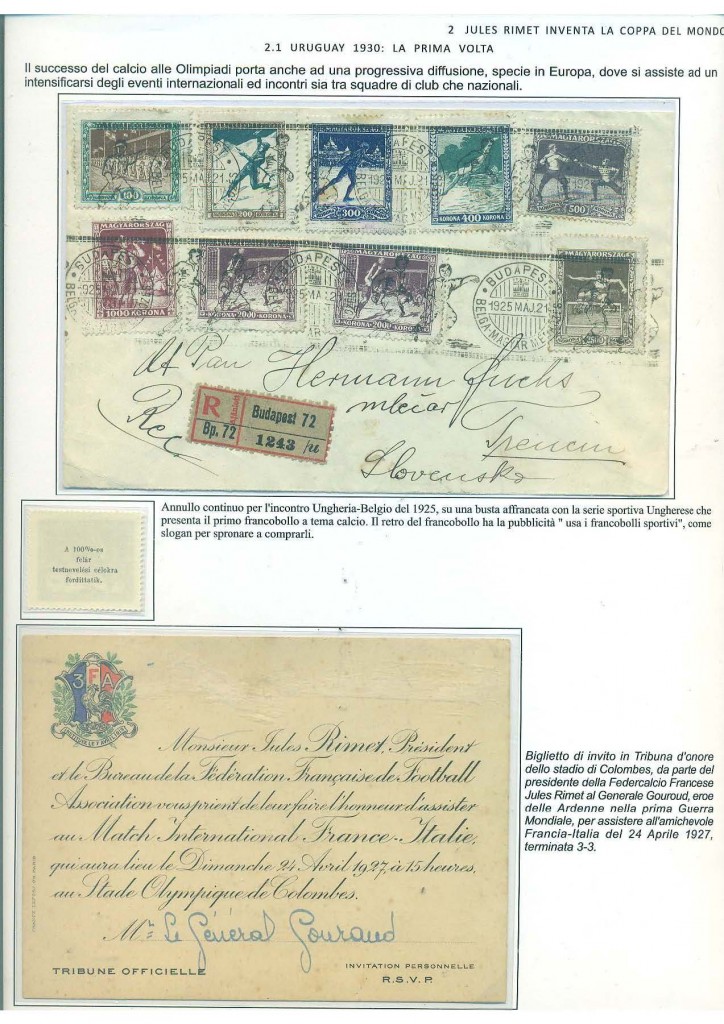 2 JULES RIMET INVENTA LA COPPA DEL MONDO
2.1 URUGUAY 1930: LA PRIMA VOLTA
Il successo del calcio alle Olimpiadi porta anche ad una progressiva diffusione, specie in Europa, dove si assiste ad un
intensificarsi degli eventi internazionali ed incontri sia tra squadre di club che nazionali.
100
200
MAGYARORSZÁG
300
KORONA 400 KORONA
MAGYARORSZÁG
500
MAGYARORSZÁG
1000 KORONA
KORONA 2000 KORONA
KORONA 2000 KORONA
BUDAPEST
1925 MAJ. 21
BELGA-MAGYAR
MAGYARORSZÁG
Pán Hermann Fuchs
mlečar
Rec
Trencin
Slovensko
R
Budapest 72
Bp. 72
1243
Annullo continuo per l'incontro Ungheria-Belgio del 1925, su una busta affrancata con la serie sportiva Ungherese che
presenta il primo francobollo a tema calcio. Il retro del francobollo ha la pubblicità " usa i francobolli sportivi", come
slogan per spronare a comprarli.
A 100%-os
felár
testnevelési célokra
fordíttatik.
3FA
Monsieur Jules Rimet, Président
et le Bureau de la Fédération Française de Football
Association vous prient de leur faire l'honneur d'assister
au Match International France-Italie,
qui aura lieu le Dimanche 24 Avril 1927, à 15 heures,
au Stade Olympique de Colombes.
Mr Le Général Gouraud
TRIBUNE OFFICIELLE
INVITATION PERSONNELLE
R.S.V.P.
Biglietto di invito in Tribuna d'onore
dello stadio di Colombes, da parte del
presidente della Federcalcio Francese
Jules Rimet al Generale Gouroud, eroe
delle Ardenne nella prima Guerra
Mondiale, per assistere all'amichevole
Francia-Italia del 24 Aprile 1927,
terminata 3-3.